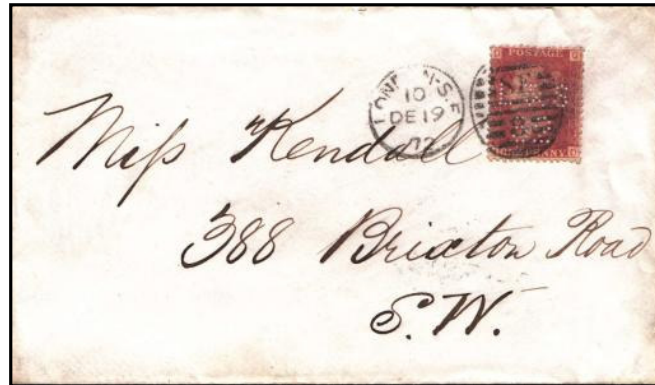 POSTAGE
LONDON-S.E
10
DE 19
72
SE
8
Miss Kendall
388 Brixton Road
S.W.